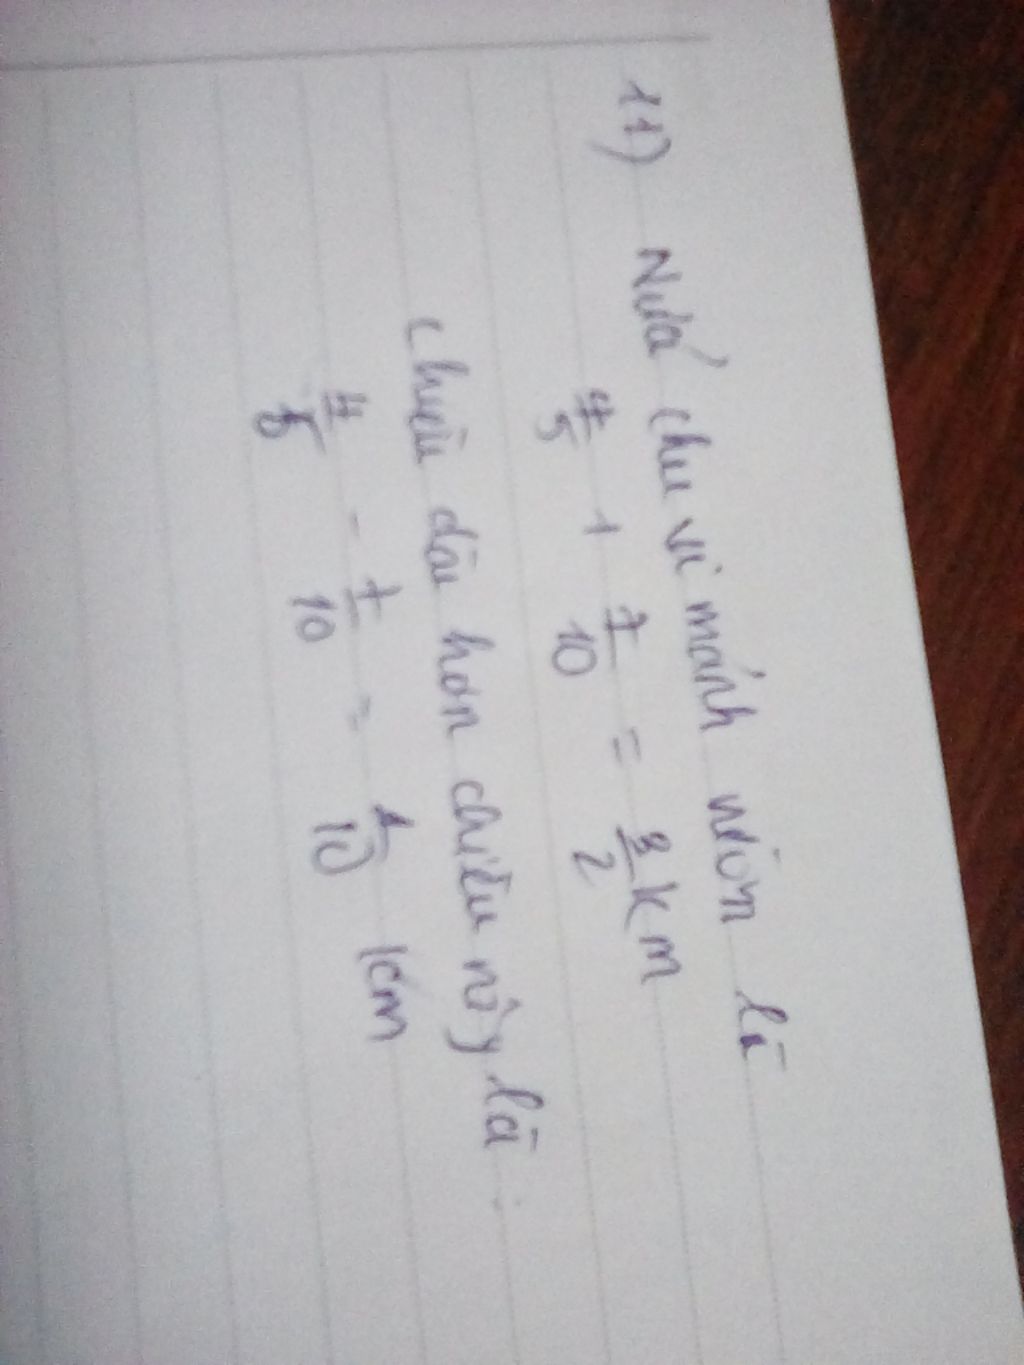 11) Nửa chu vi mảnh vườn là
4/5 + 7/10 = 3/2 km
Chiều dài hơn chiều
4/5 - 7/10 = 1/10 km